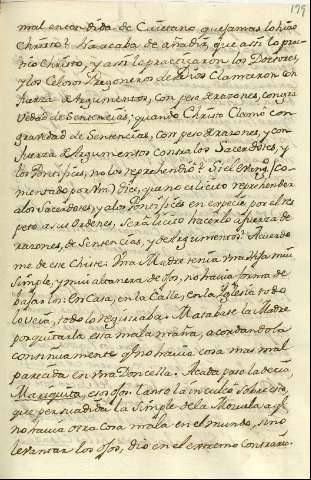 179
mal entendida de Cayetano que jamas lo hizo
Christo? Ya acaba de añadir, que assi lo pre-
vio Christo, y assi lo practicaron los Doctores,
y los Celosos Pregoneros de Dios Clamaron con
fuerza de Argumentos, con peso de razones, con gra
vedad de Sentencias; quando Christo Clamó con
gravedad de Sentencias, con peso de razones, y con
fuerza de Argumentos contra los Sacerdotes, y
los Pontifices, no los reprehendió? Si el
comentado por Vm) dice, que no es licito reprehender
a los Sacerdotes, y a los Pontifices en especie, por el res
peto a sus Ordenes, será licito hacerlo a fuerza de
razones, de Sentencias, y de Argumentos? Acuerdo
me de este Chiste: Una Madre tenia una Hija mui
Simple, y mui altanera de ojos, no havia forma de
bajarlos: en Casa, en la Calle, en la Iglesia todo
lo veia, todo lo registraba. Matabase la Madre
por quitarla esta mala maña, acordandola
continuamente q no havia cosa mas mal
parecida en una Doncella. Acada paso la decia,
Mariquita, esos ojos: tanto la inculcó sobre esto,
que persuadida la Simple de la Mozuela, a q
no havia otra cosa mala en el mundo, sino
levantar los ojos, dio en el extremo Contrario.